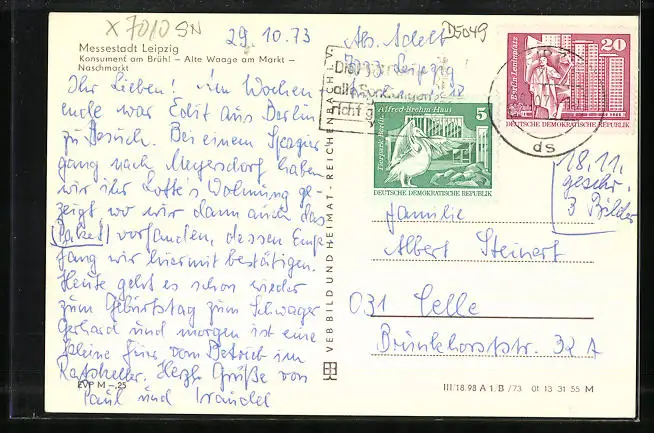 X 7010 SN
29.10.73
D5049
Messestadt Leipzig
Konsument am Brühl – Alte Waage am Markt –
Naschmarkt
Abs. Adelt
Leipzig
Ihr Lieben! im Wochen-
ende war Edit aus Berlin
zu Besuch. Bei einem Spazier
gang nach Meyersdorf haben
wir ihr Lotte's Wohnung ge-
zeigt, wo wir dann auch das
(Paket) vorfanden, dessen Emp-
fang wir hiermit bestätigen.
Heute geht es schon wieder
zum Geburtstag zum Schwager
Gerhard und morgen ist eine
kleine Feier vom Betrieb im
Ratskeller. Herzl. Grüße von
Paul und Traudel
EVP M –,25
VEB BILD UND HEIMAT · REICHENBACH I. V.
Alfred-Brehm-Haus
Tierpark Berlin
5
DEUTSCHE DEMOKRATISCHE REPUBLIK
Berlin, Leninplatz
20
DEUTSCHE DEMOKRATISCHE REPUBLIK
18.11.
geschr.
3 Bilder
Familie
Albert Steinert
031 Celle
Brünkhorststr. 32 A
III/18.98 A 1, B /73 01 13 31 55 M